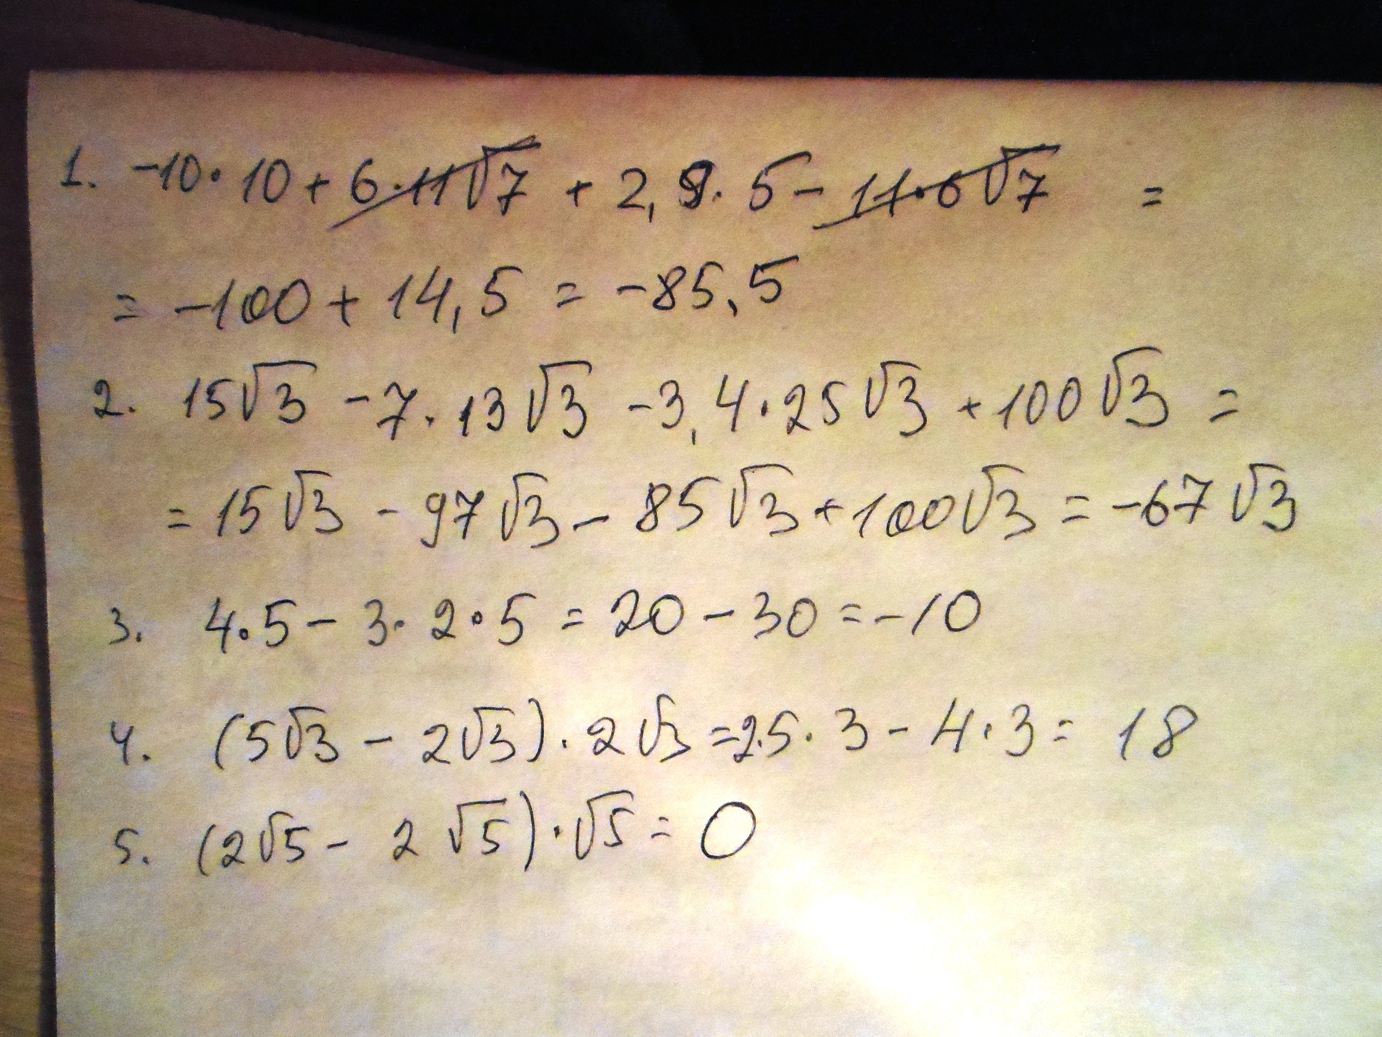 1. -10·10+6·11√7 + 2,9·5-11·6√7 =
= -100+14,5 = -85,5
2. 15√3 -7·13√3 -3,4·25√3 +100√3 =
= 15√3 - 97√3 - 85√3 + 100√3 = -67√3
3. 4·5 - 3·2·5 = 20 - 30 = -10
4. (5√3 - 2√3)·2√3 = 25·3 - 4·3 = 18
5. (2√5 - 2√5)·√5 = 0